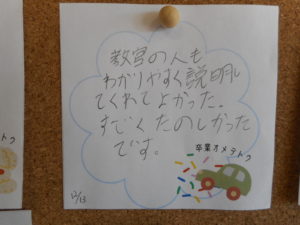 教官の人も
わかりやすく説明し
てくれてよかった。
すごくたのしかった
です。
卒業オメデトウ
12/13